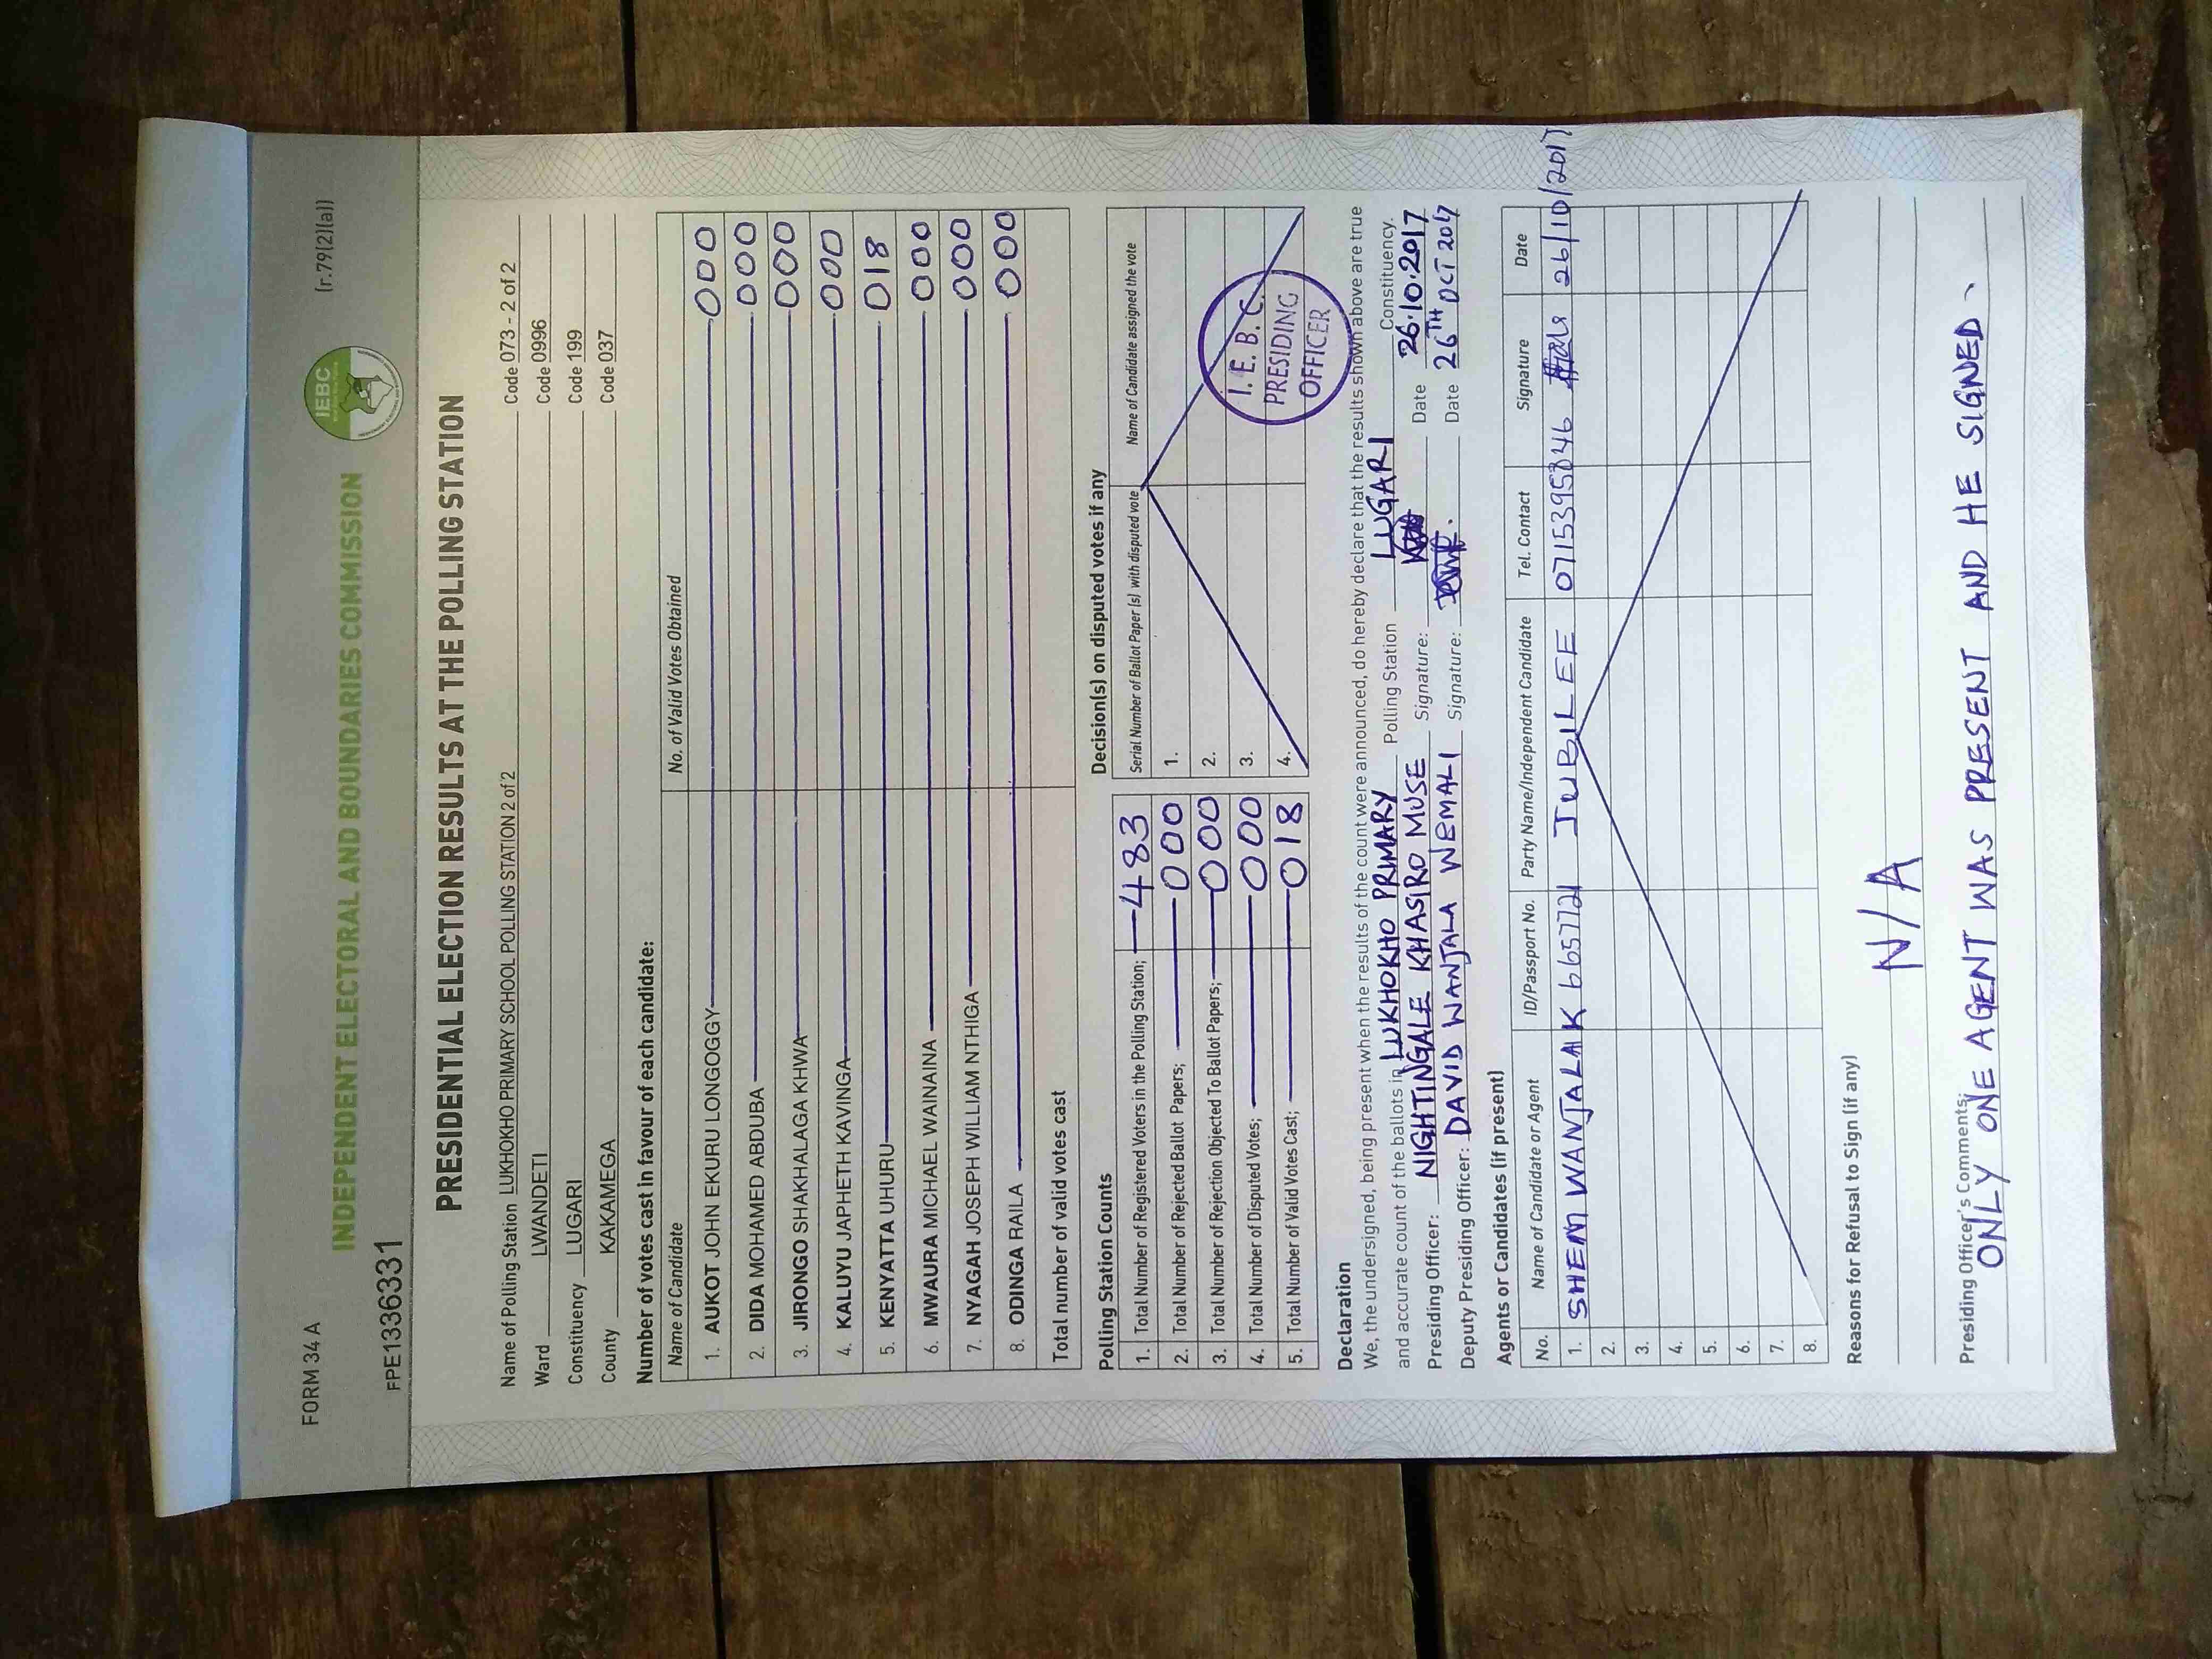 FORM 34 A
(r.79(2)(a))
IEBC
INDEPENDENT ELECTORAL AND BOUNDARIES COMMISSION
FPE1336331
PRESIDENTIAL ELECTION RESULTS AT THE POLLING STATION
Name of Polling Station LUKHOKHO PRIMARY SCHOOL POLLING STATION 2 of 2 Code 073 - 2 of 2
Ward LWANDETI Code 0996
Constituency LUGARI Code 199
County KAKAMEGA Code 037
Number of votes cast in favour of each candidate:
Name of Candidate No. of Valid Votes Obtained
1. AUKOT JOHN EKURU LONGOGGY 000
2. DIDA MOHAMED ABDUBA 000
3. JIRONGO SHAKHALAGA KHWA 000
4. KALUYU JAPHETH KAVINGA 000
5. KENYATTA UHURU 018
6. MWAURA MICHAEL WAINAINA 000
7. NYAGAH JOSEPH WILLIAM NTHIGA 000
8. ODINGA RAILA 000
Total number of valid votes cast
Polling Station Counts
1. Total Number of Registered Voters in the Polling Station; 483
2. Total Number of Rejected Ballot Papers; 000
3. Total Number of Rejection Objected To Ballot Papers; 000
4. Total Number of Disputed Votes; 000
5. Total Number of Valid Votes Cast; 018
Decision(s) on disputed votes if any
Serial Number of Ballot Paper (s) with disputed vote Name of Candidate assigned the vote
1.
2.
3.
4.
I. E. B. C.
PRESIDING
OFFICER
Declaration
We, the undersigned, being present when the results of the count were announced, do hereby declare that the results shown above are true
and accurate count of the ballots in LUKHOKHO PRIMARY Polling Station LUGARI Constituency.
Presiding Officer: NIGHTINGALE KHASIRO MUSE Signature: Date 26.10.2017
Deputy Presiding Officer: DAVID WANJALA WEMALI Signature: Date 26TH OCT 2017
Agents or Candidates (if present)
No. Name of Candidate or Agent ID/Passport No. Party Name/Independent Candidate Tel. Contact Signature Date
1. SHEM WANJALA K 6657721 JUBILEE 0715395846 26/10/2017
2.
3.
4.
5.
6.
7.
8.
Reasons for Refusal to Sign (if any)
N/A
Presiding Officer's Comments;
ONLY ONE AGENT WAS PRESENT AND HE SIGNED.